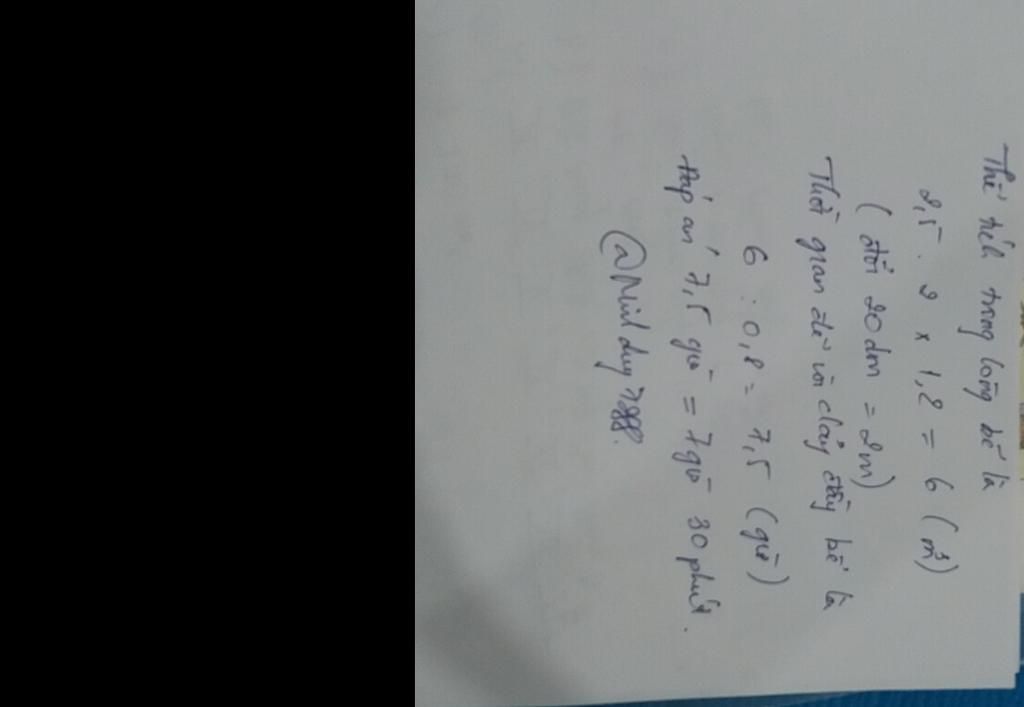 Thể tích trong lòng bể là
2,5 . 2 x 1,2 = 6 (m³)
(đổi 20dm = 2m)
Thời gian để vòi chảy đầy bể là
6 : 0,8 = 7,5 (giờ)
Đáp án 7,5 giờ = 7 giờ 30 phút.